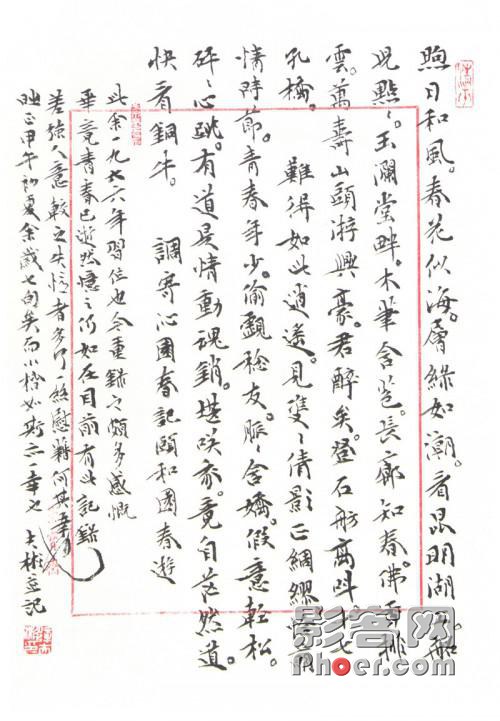 煦日和風。春花似海。層綠如潮。看昆明湖 船
兒點點。玉瀾堂畔。木筆含苞。長廊知春。佛香排
雲。萬壽山頭游興豪。君醉矣。登石舫高 十七
孔橋。 難得如此逍遙。見雙雙倩影正綢繆。
情時節。青春年少。偷覷稔友。脈脈含嬌。假意輕松。
砰砰心跳。有道是情動魂銷。堪咲 竟自茫然道。
快看銅牛。 調寄沁園春記頤和園春遊
此余一九七六年習位也今重錄之頗多感慨
畢竟青春已逝然憶之仍如在目前有此記錄
差強人意較之失憶者多了些慰藉何其幸
甲午初夏余歲七旬矣而小楷如斯亦一幸也 士彬並記
影客网
Phoer.com